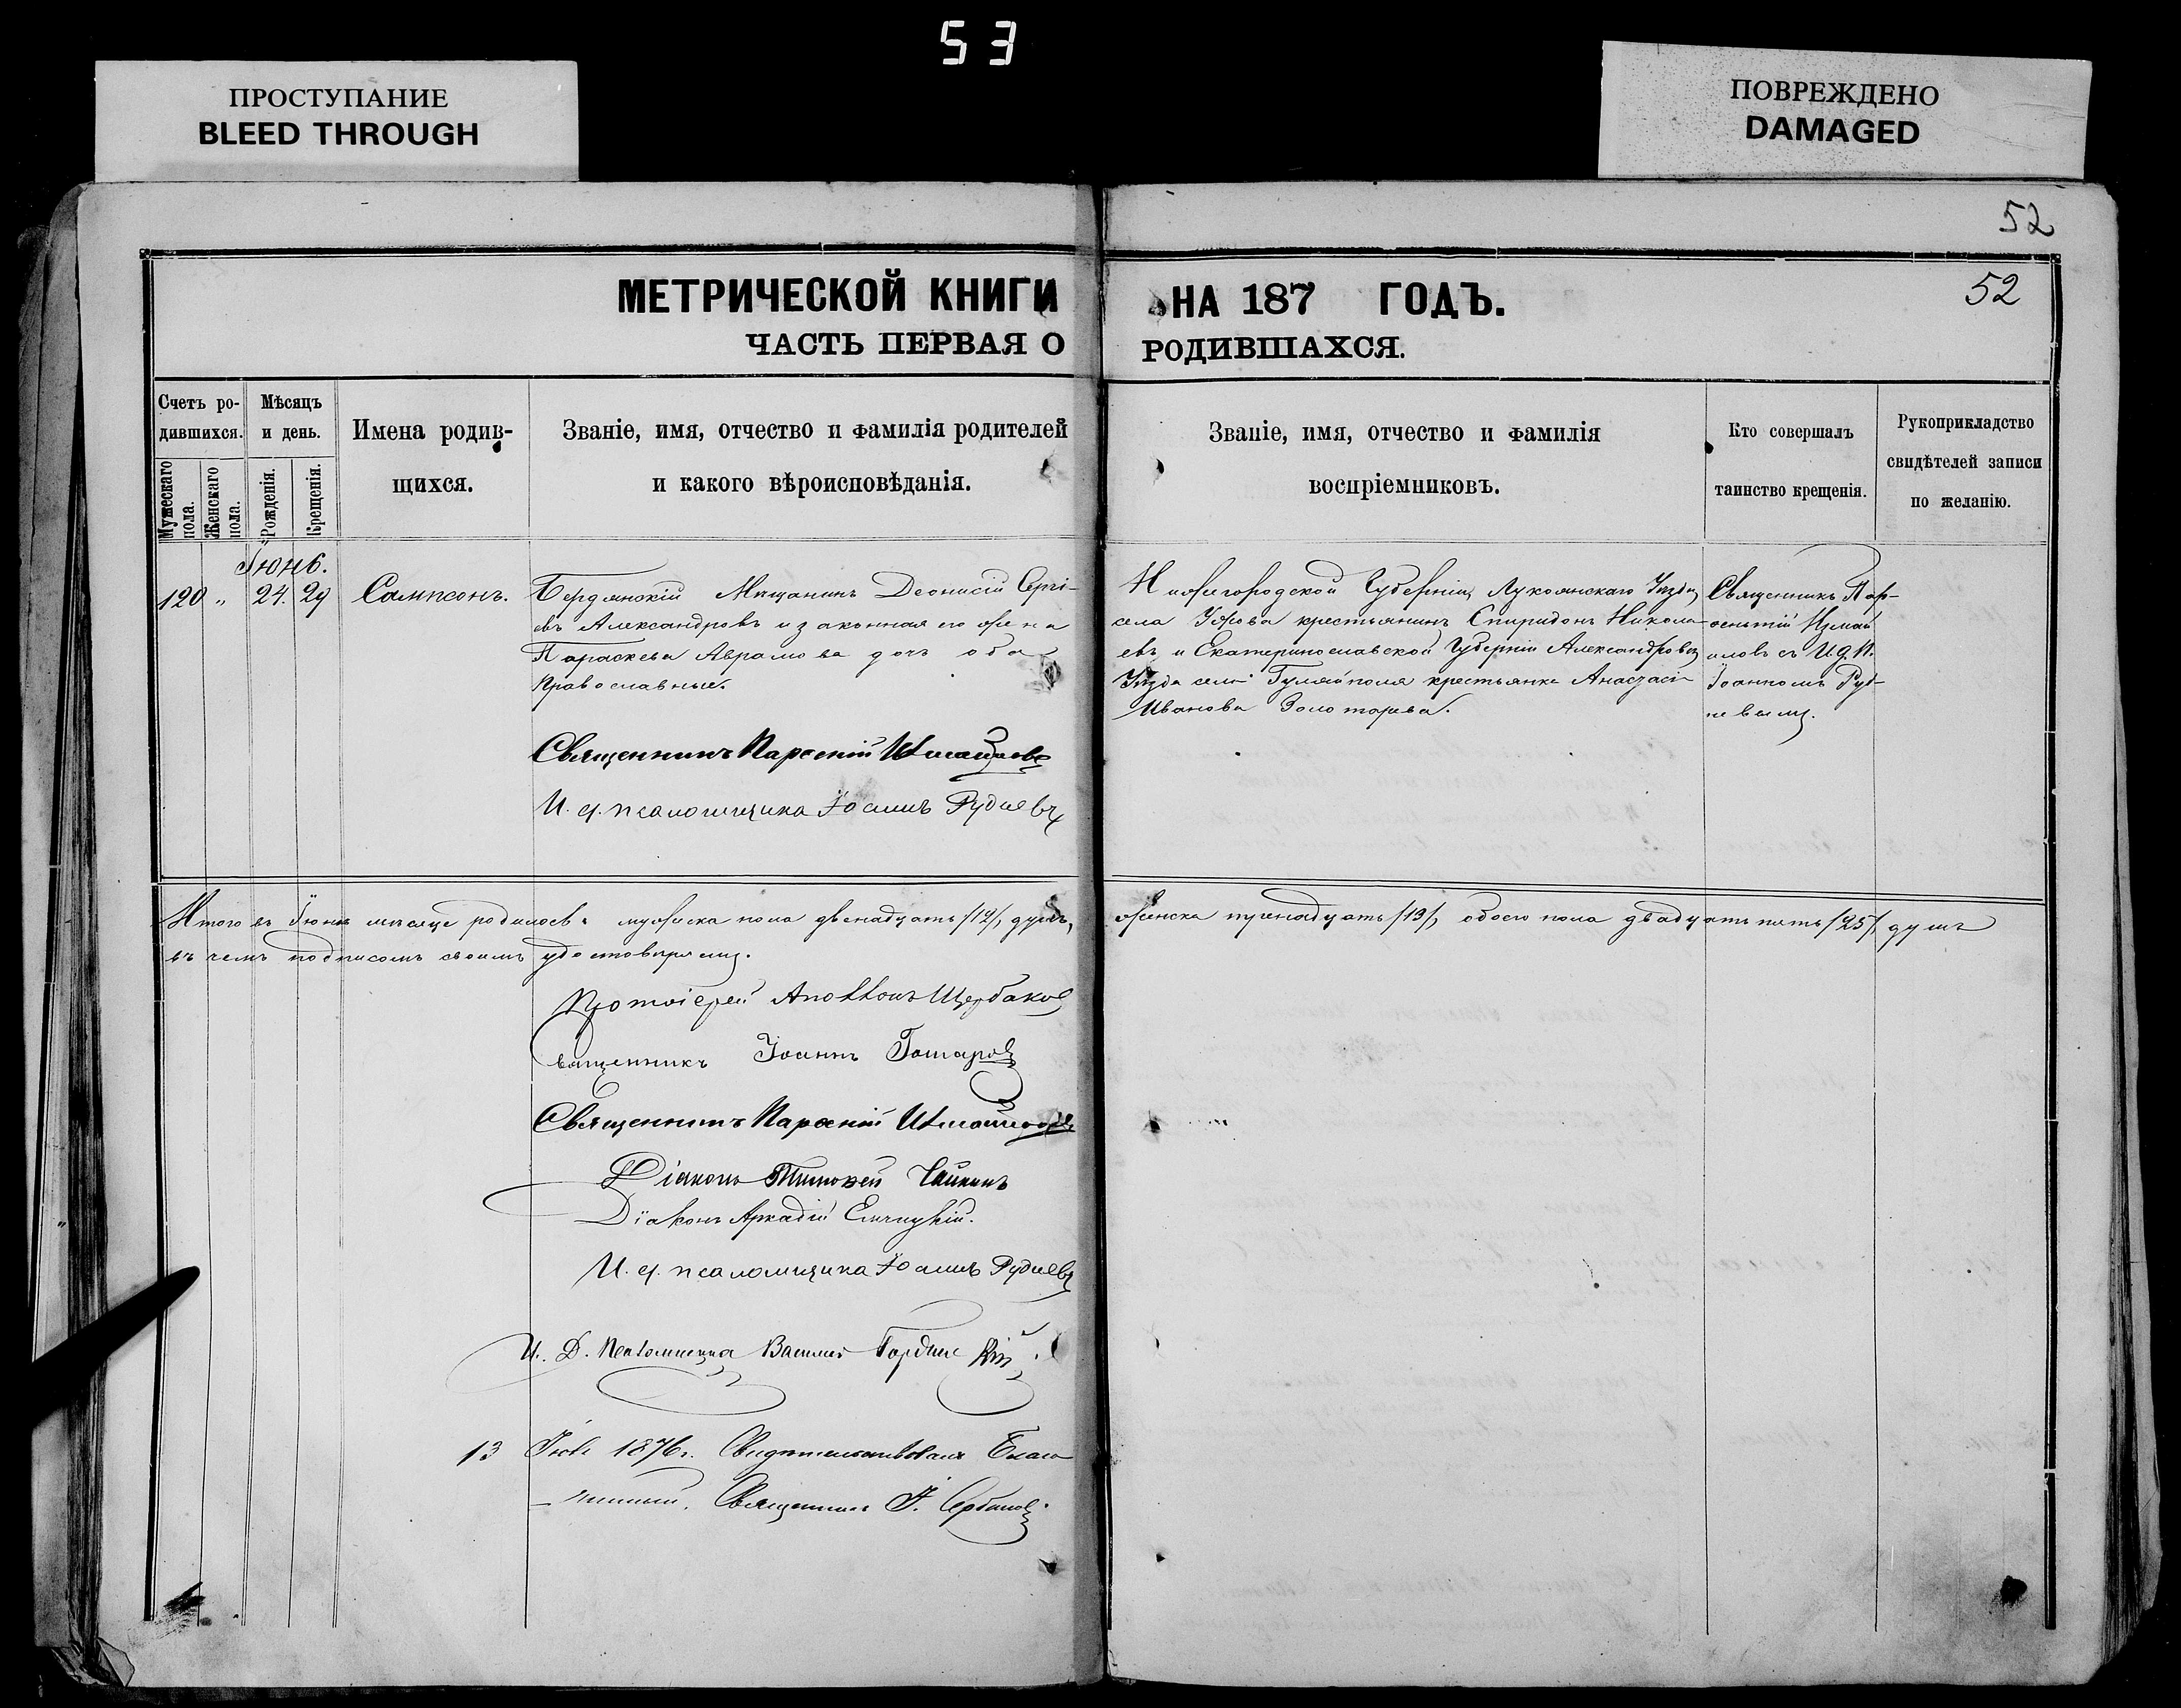 53
ПРОСТУПАНИЕ
BLEED THROUGH
ПОВРЕЖДЕНО
DAMAGED
52
52
МЕТРИЧЕСКОЙ КНИГИ НА 187 ГОДЪ.
ЧАСТЬ ПЕРВАЯ О РОДИВШАХСЯ.
Счетъ ро-
дившихся.
Мужескаго пола.
Женскаго пола.
Мѣсяцъ
и день.
Рожденія.
Крещенія.
Имена родив-
щихся.
Званіе, имя, отчество и фамилія родителей
и какого вѣроисповѣданія.
Званіе, имя, отчество и фамилія
воспріемниковъ.
Кто совершалъ
таинство крещенія.
Рукоприкладство
свидѣтелей записи
по желанію.
Іюнь.
120 " 24. 29 Сампсонъ.
Бердянскій Мѣщанинъ Деонисій Сергі-
евъ Александровъ и законная его жена
Параскева Аврамова дочь оба
Православные.
Нижегородской Губерніи, Лукоянскаго Уѣзда,
села крестьянинъ Спиридонъ Никола-
евъ и Екатеринославской Губерніи Александровск
Уѣзда села Гуляйполя крестьянка Анастасія
Иванова Золотарева.
Священникъ Пар-
ѳеній Измаи
иловъ съ И.д.П.
Іоанномъ Руд-
невымъ.
Священникъ Парѳеній Измаиловъ
И. д. псаломщика Іоаннъ Рудневъ
Итого въ Іюнѣ мѣсяце родилось: мужеска пола двенадцать /12/, душъ, женска тринадцать /13/, обоего пола двадцать пять /25/, душъ
въ чемъ подписомъ своимъ удостовѣряемъ.
Протоіерей Аполлонъ Щербаковъ
Священникъ Іоаннъ Гошаров
Священникъ Парѳеній Измаиловъ
Діаконъ Тимоѳей Чайкинъ
Діаконъ Аркадій
И. д. псаломщика Іоаннъ Рудневъ
И. Д. Псаломщика Василій
13 Іюля 1876 г. Свидѣтельствовалъ Благо
-чинный, Священникъ І. Сербиновъ